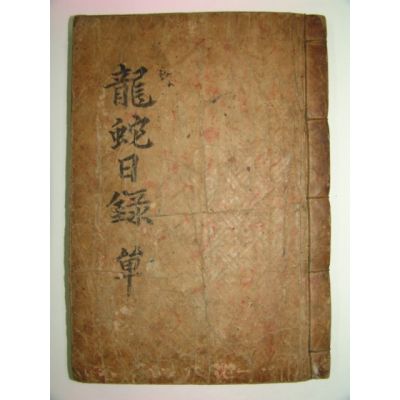 龍蛇日錄 單